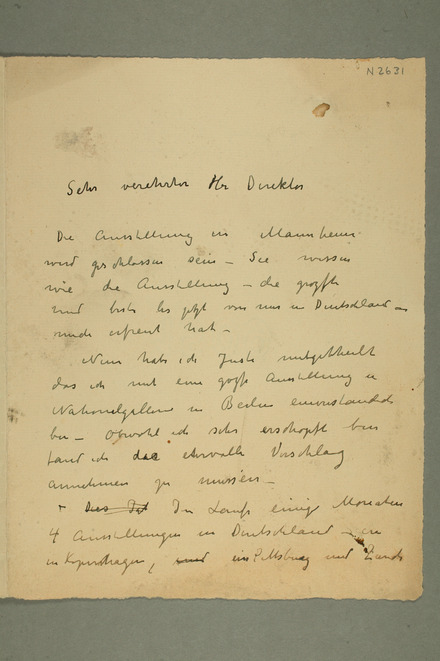 N 2631
Sehr verehrter Hr Direktor
Die Ausstellung in Mannheim
wird geschlossen sein – Sie wissen
wie die Ausstellung – die größte
und beste bis jetzt von mir in Deutschland –
mich erfreut hat –
Nun habe ich Justi mitgetheilt
das ich mit eine große Ausstellung in
Nationalgallerie in Berlin einverstanden
bin – obwohl ich sehr erschöpft bin
fand ich das ehrvolle Vorschlag
annehmen zu müssen –
Das Ist In Laufe einige Monaten
4 Ausstellungen in Deutschland – in
in Kopenhagen, und in Pittsburg und Zürich